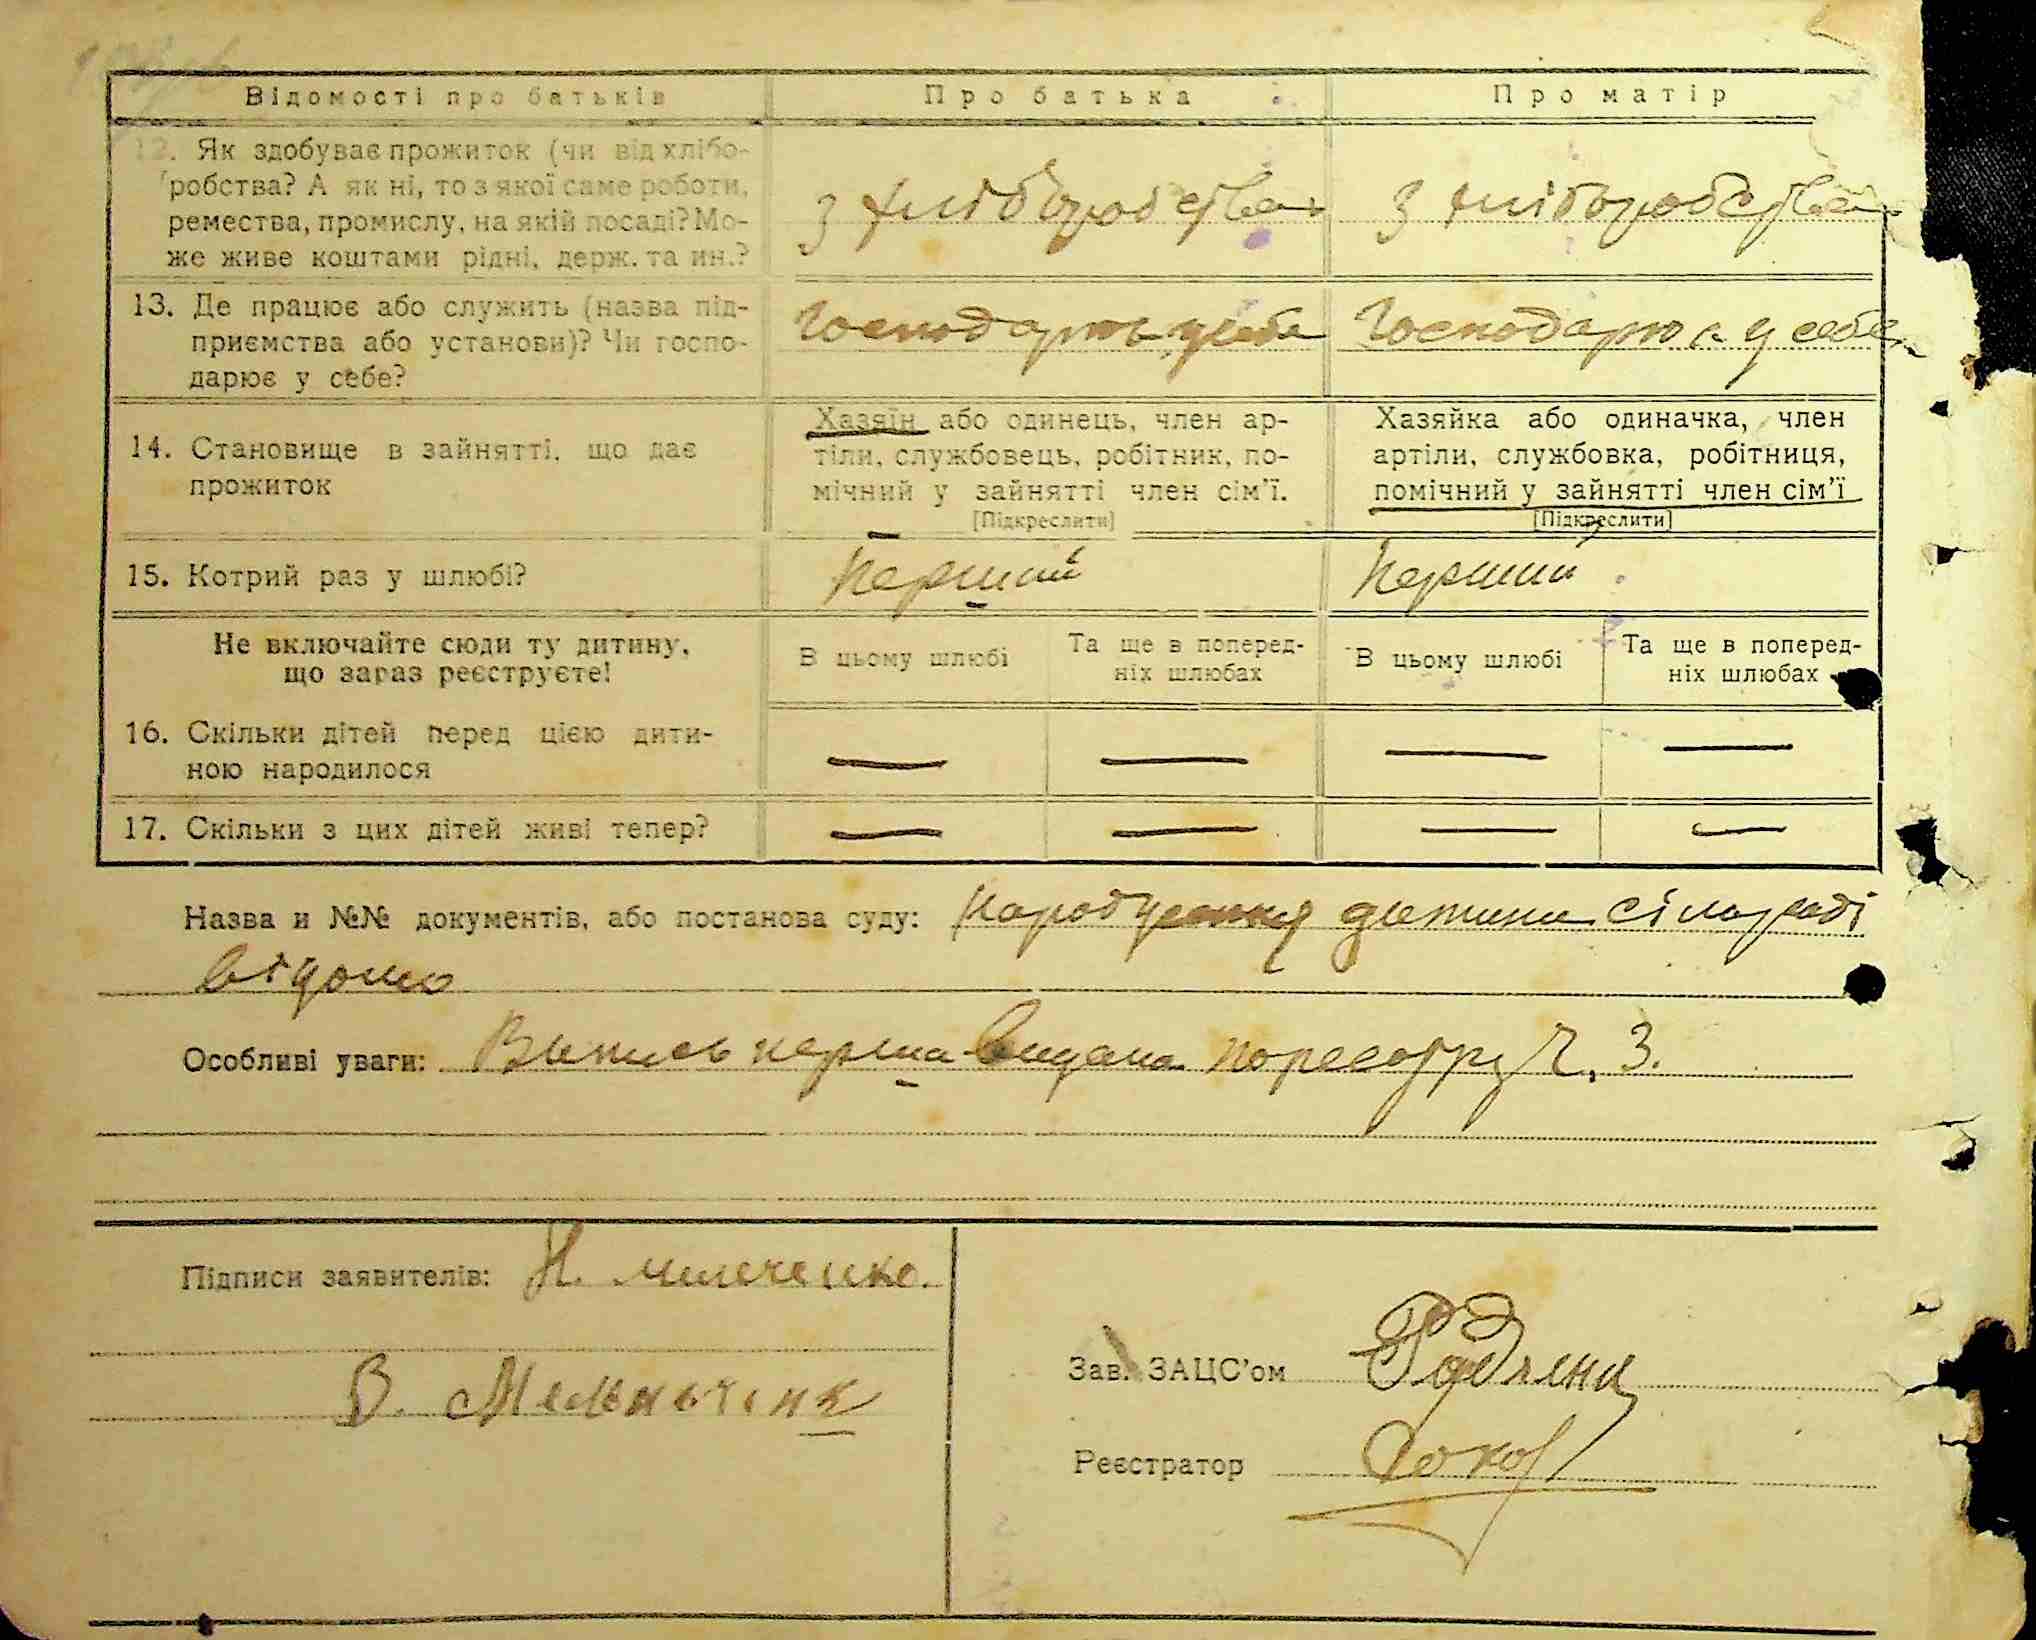 Відомості про батьків Про батька Про матір
12. Як здобуває прожиток (чи від хлібо-
робства? А як ні, то з якої саме роботи,
ремества, промислу, на якій посаді? Мо-
же живе коштами рідні, держ. та ин.?
з хліборобства з хліборобства
13. Де працює або служить (назва під-
приємства або установи)? Чи госпо-
дарює у себе?
Господарює у себе Господарює у себе
14. Становище в зайнятті, що дає
прожиток
Хазяїн або одинець, член ар-
тіли, службовець, робітник, по-
мічний у зайнятті член сім'ї.
[Підкреслити]
Хазяйка або одиначка, член
артіли, службовка, робітниця,
помічний у зайнятті член сім'ї
[Підкреслити]
15. Котрий раз у шлюбі? Перший Перший
Не включайте сюди ту дитину,
що зараз реєструєте!
В цьому шлюбі
Та ще в поперед-
ніх шлюбах
В цьому шлюбі
Та ще в поперед-
ніх шлюбах
16. Скільки дітей перед цією дити-
ною народилося
— — — —
17. Скільки з цих дітей живі тепер? — — — —
Назва и №№ документів, або постанова суду: народження дитини сільраді
відомо
Особливі уваги: Витись перша видана по реєстру Ч. 3.
Підписи заявителів:
В. Мельничик
Зав. ЗАЦС'ом
Реєстратор